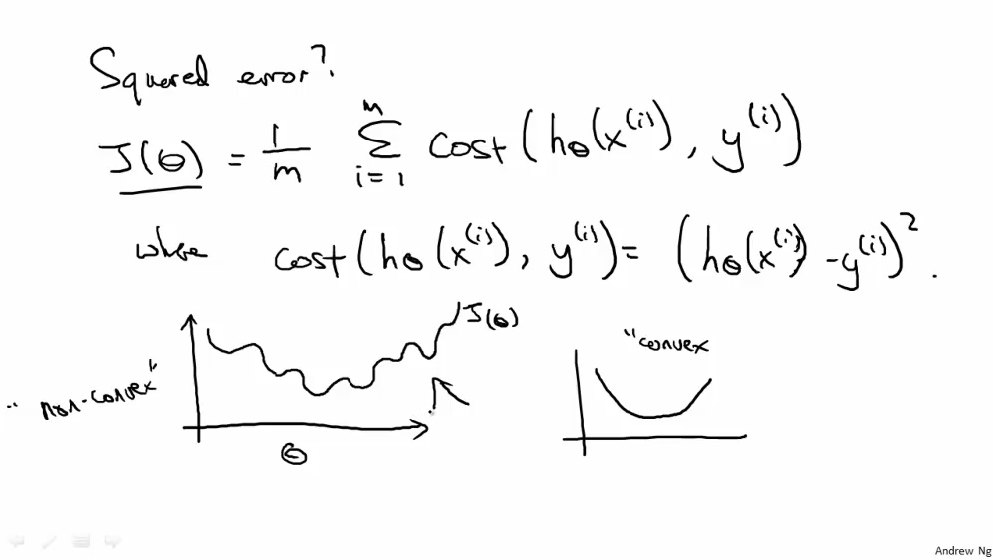 Squared error?
J(θ) = 1/m Σ_{i=1}^{m} cost(hθ(x^(i)), y^(i))
where cost(hθ(x^(i)), y^(i)) = (hθ(x^(i)) - y^(i))².
J(θ)
"convex
"non-convex"
θ
Andrew Ng